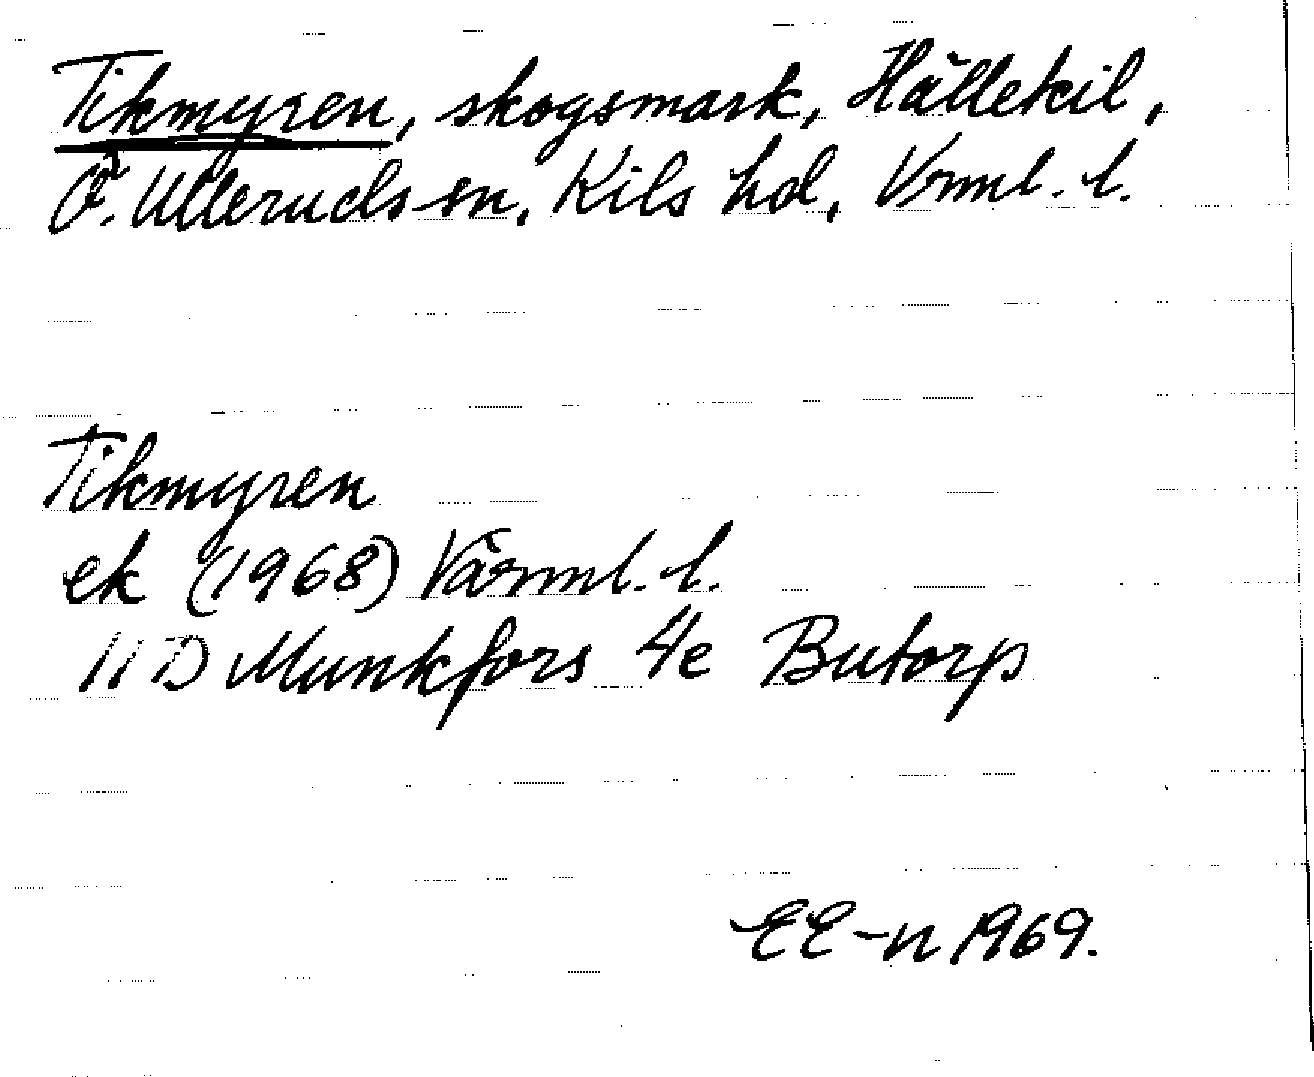 Tikmyren, skogsmark, Hällekil,
Ö. Ulleruds sn, Kils hd, Vrml. l.
Tikmyren
ek (1968) Värml. l.
11 D Munkfors 4e Butorp
EE-n 1969.